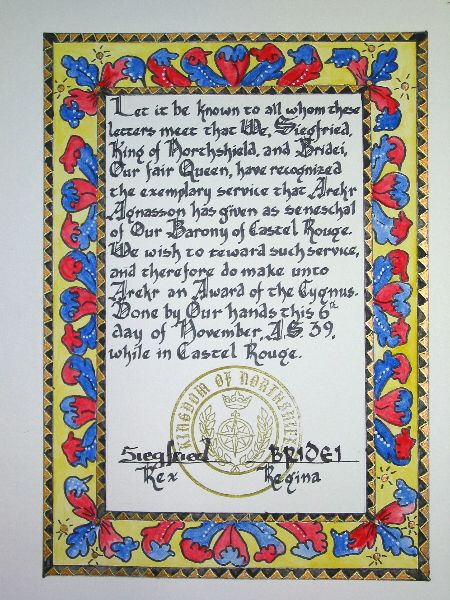 Let it be known to all whom these
letters meet that We, Siegfried,
King of Northshield, and Bridei,
Our fair Queen, have recognized
the exemplary service that Arekr
Agnasson has given as seneschal
of Our Barony of Castel Rouge.
We wish to reward such service,
and therefore do make unto
Arekr an Award of the Cygnus.
Done by Our hands this 6th
day of November, A.S. 39,
while in Castel Rouge.
KINGDOM OF NORTHSHIELD
Siegfried BRIDEI
Rex Regina